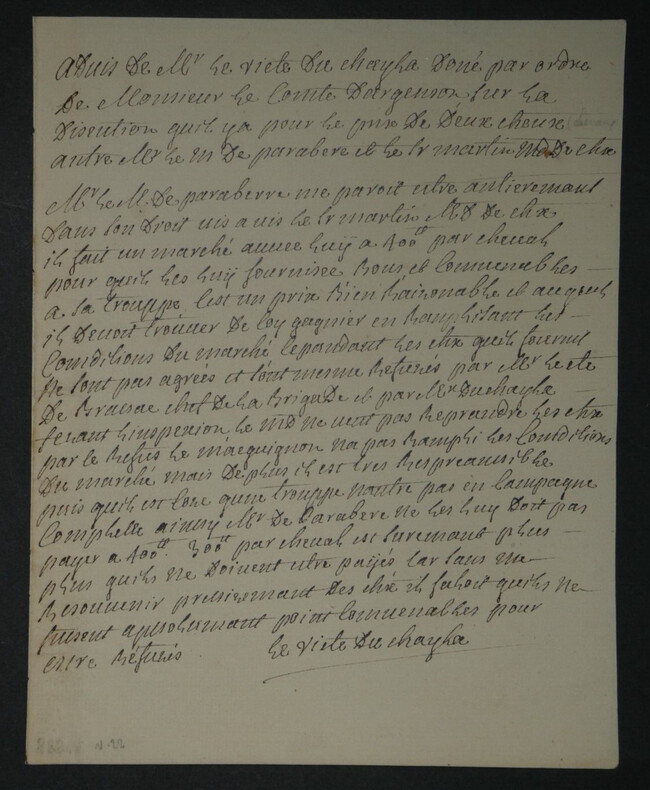 aduis De Mr Le victe Du chayla Doné par ordre
De Monsieur Le Comte Dargenson, sur La
Discution quil y a pour le prix De Deux cheux
antre Mr Le m De parabere et Le sr martin md De chx
Mr Le M. De paraberre me paroit estre antierement
Dans son Droit uis a uis Le sr martin Md De chx
il fait un marché auuec Luy a 400tt par cheual
pour quil Les Luy fournisse Bons et Conuenables
a sa trouppe, C'est un prix Bien Raisonable et auquel
il Deuoit trouuer De quoy gagnier en Ramplisant Les
Condiditions Du marché Cepandant Les chx quil fournit
Ne sont pas agréés et sont mesme Refusés par Mr Le cte
De Brassac chef De La Brigade et par Mr Duchayla
fesant L'inspexion Le md ne ueut pas Reprandre Les chx
par Le Refus Le maequignon na pas Rampli Les Condidions
Du marché mais De plus il est tres Respreansible
puis quil est Cose qune trouppe nantre pas en Campagne
Complette ainsy Mr De Parabere ne Les Luy Doit pas
payer a 400tt. 300tt par cheual est surement plus
plus quils ne Doiuent estre payés Car sans me
Resouuenir presisemant Des chx il faloit quils ne
fusent apsolumant point Conuenables pour
estre Refusés
Le victe Du chayla